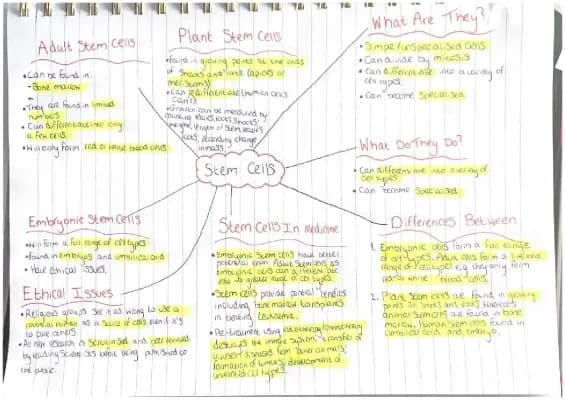 Adult Stem Cells
• Can be found in:
- Bone marrow
• They are found in limited
numbers.
• Can differentiate into only
a few cells.
• Will only form red or white blood cells.
Plant Stem Cells
• Found in growing points at the ends
of shoots and roots (apices or
meristems)
• Can redifferentiate (human cells
can't)
• Growth can be measured by
counting leaves, roots, shoots;
length of stem, leaves
roots; recording change
in mass.
What Are They?
• Simple/unspecialised cells
• Can divide by mitosis
• Can differentiate into a variety of
cell types.
• Can become specialised.
Stem Cells
What Do They Do?
• Can differentiate into a variety of
cell types
• Can become specialised.
Embryonic Stem Cells
• Will form a full range of cell types
• Found in embryos and umbilical cord
• Have ethical issues.
Ethical Issues
• Religious groups see it as wrong to use a
potential human as a source of cells, even if it's
to cure others.
• All new research is scrutinised and peer reviewed
by leading scientists before being published to
the public.
Stem Cells In Medicine
• Embryonic Stem cells have better
potential than Adult Stem cells as
embryonic cells can differentiate
into a greater range of cell types.
• Stem cells provide potential benefits
including bone marrow transplants
in treating leukaemia.
• Pre-treatment using radiotherapy/chemotherapy
destroys the immune system; transfer of
viruses/diseases from other animals;
formation of tumours; development of
unwanted cell types.
Differences Between
1. Embryonic cells form a full range
of cell types. Adult cells form a limited
range of cell types e.g. they only form
red or white blood cells.
2. Plant stem cells are found in growing
points at shoots and roots, whereas
animal stem cells are found in bone
marrow. Human stem cells found in
umbilical cord and embryo.